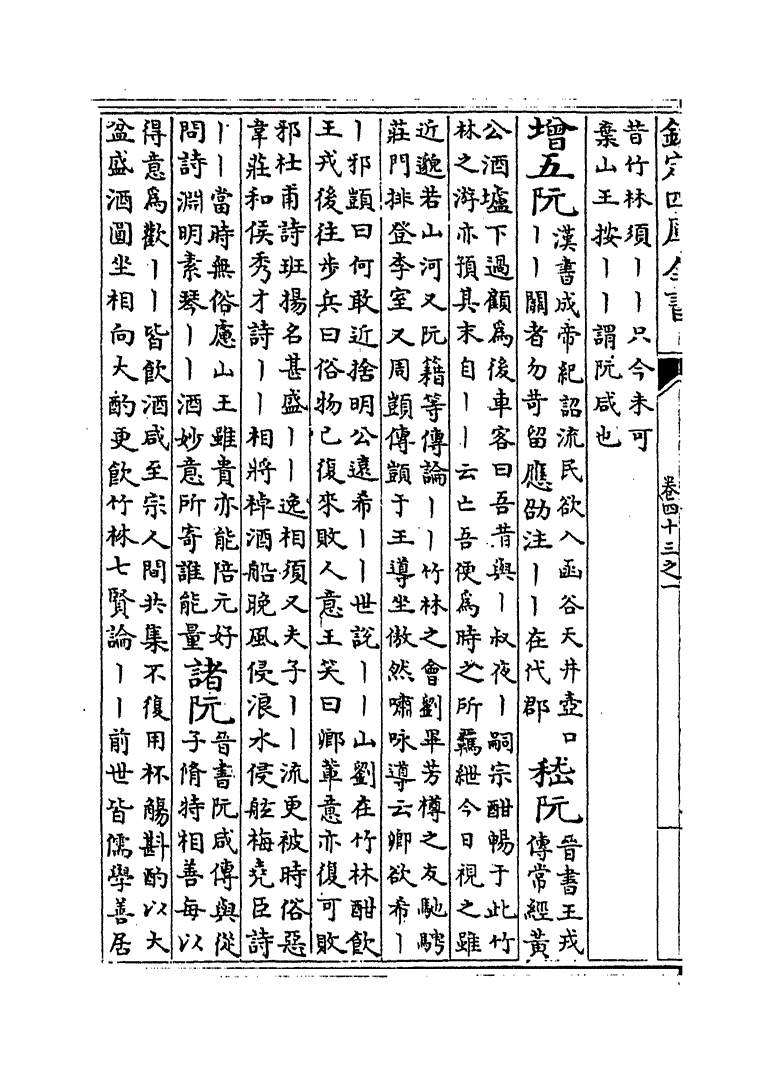 欽定四庫全書
卷四十三之一
昔竹林須丨丨只今未可
棄山王按丨丨謂阮咸也
增五阮
漢書成帝紀詔流民欲入函谷天井壺口
丨丨關者勿苛留應劭注丨丨在代郡
嵇阮
晉書王戎
傳常經黃
公酒壚下過顧爲後車客曰吾昔與丨叔夜丨嗣宗酣暢于此竹
林之游亦預其末自丨丨云亡吾便爲時之所羈紲今日視之雖
近邈若山河又阮籍等傳論丨丨竹林之會劉畢芳樽之友馳騁
莊門排登李室又周顗傳顗于王導坐傲然嘯咏導云卿欲希丨
丨邪顗曰何敢近捨明公遠希丨丨世說丨丨山劉在竹林酣飲
王戎後往步兵曰俗物已復來敗人意王笑曰卿輩意亦復可敗
邪杜甫詩班揚名甚盛丨丨逸相須又夫子丨丨流更被時俗惡
韋莊和侯秀才詩丨丨相將棹酒船晚風侵浪水侵舷梅堯臣詩
丨丨當時無俗慮山王雖貴亦能陪元好
問詩淵明素琴丨丨酒妙意所寄誰能量
諸阮
晉書阮咸傳與從
子脩特相善每以
得意爲歡丨丨皆飲酒咸至宗人間共集不復用杯觴斟酌以大
盆盛酒圓坐相向大酌更飲竹林七賢論丨丨前世皆儒學善居